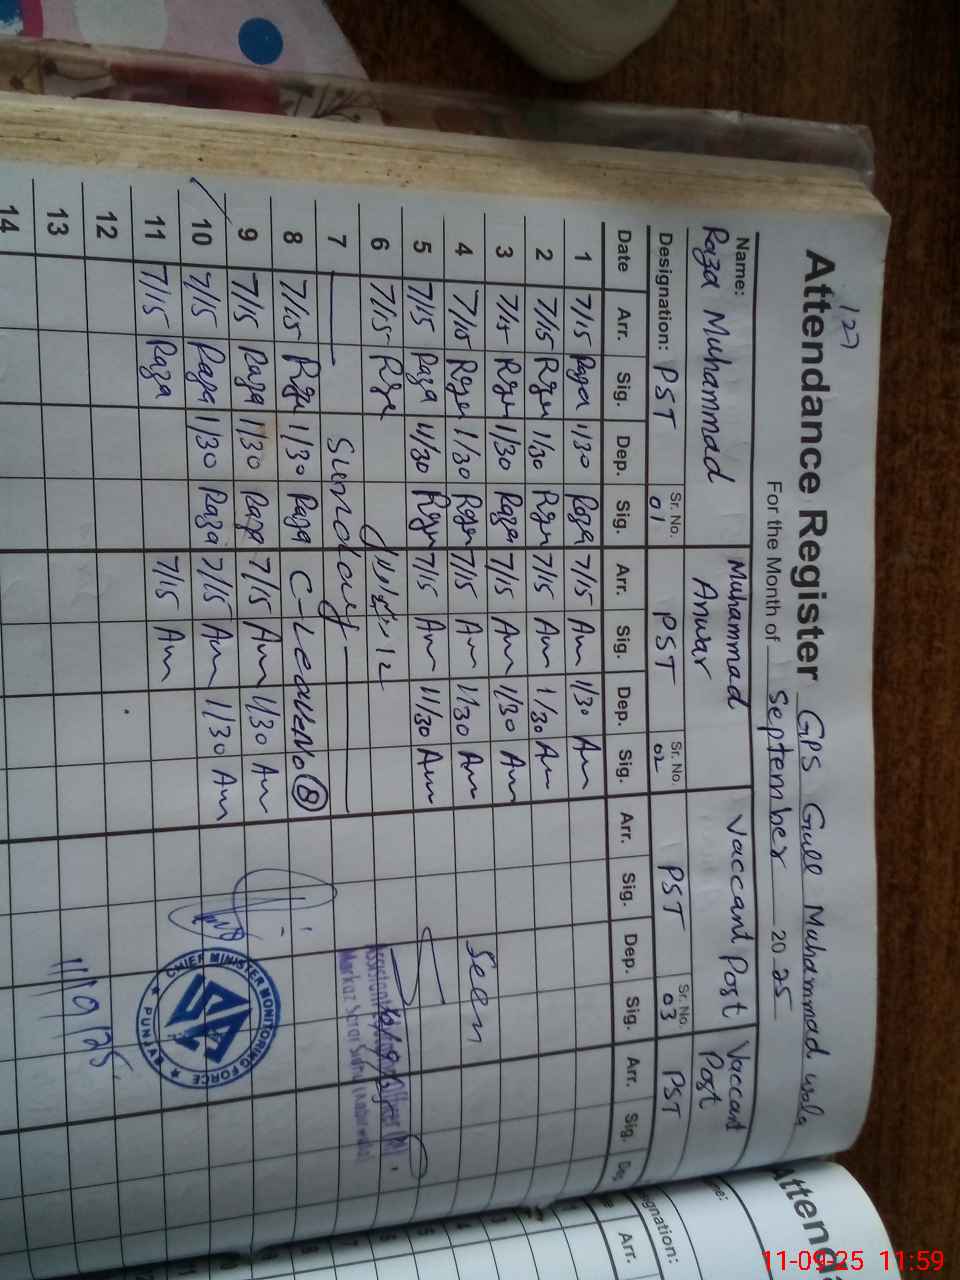 127
Attendance Register GPS Gull Muhammad wala
For the Month of September 2025
Name: Raza Muhammad Muhammad Anwar Vaccant Post Vaccant Post
Designation: PST Sr. No. 01 PST Sr. No. 02 PST Sr. No. 03 PST
Date Arr. Sig. Dep. Sig. Arr. Sig. Dep. Sig. Arr. Sig. Dep. Sig. Arr. Sig.
1 7/15 Raza 1/30 Raza 7/15 Am 1/30 Am
2 7/15 Raza 1/30 Raza 7/15 Am 1/30 Am
3 7/15 Raza 1/30 Raza 7/15 Am 1/30 Am
4 7/15 Raza 1/30 Raza 7/15 Am 1/30 Am Seen
5 7/15 Raza 11/30 Raza 7/15 Am 11/30 Am
6 7/15 Raza
7 Sunday
8 7/15 Raza 1/30 Raza C-Leave No 8
9 7/15 Raza 1/30 Raza 7/15 Am 1/30 Am
10 7/15 Raza 1/30 Raza 7/15 Am 1/30 Am
11 7/15 Raza 7/15 Am
12
13
14
CHIEF MINISTER MONITORING FORCE
PUNJAB
11/9/25
Attend
Designation:
Arr.
11-09-25 11:59